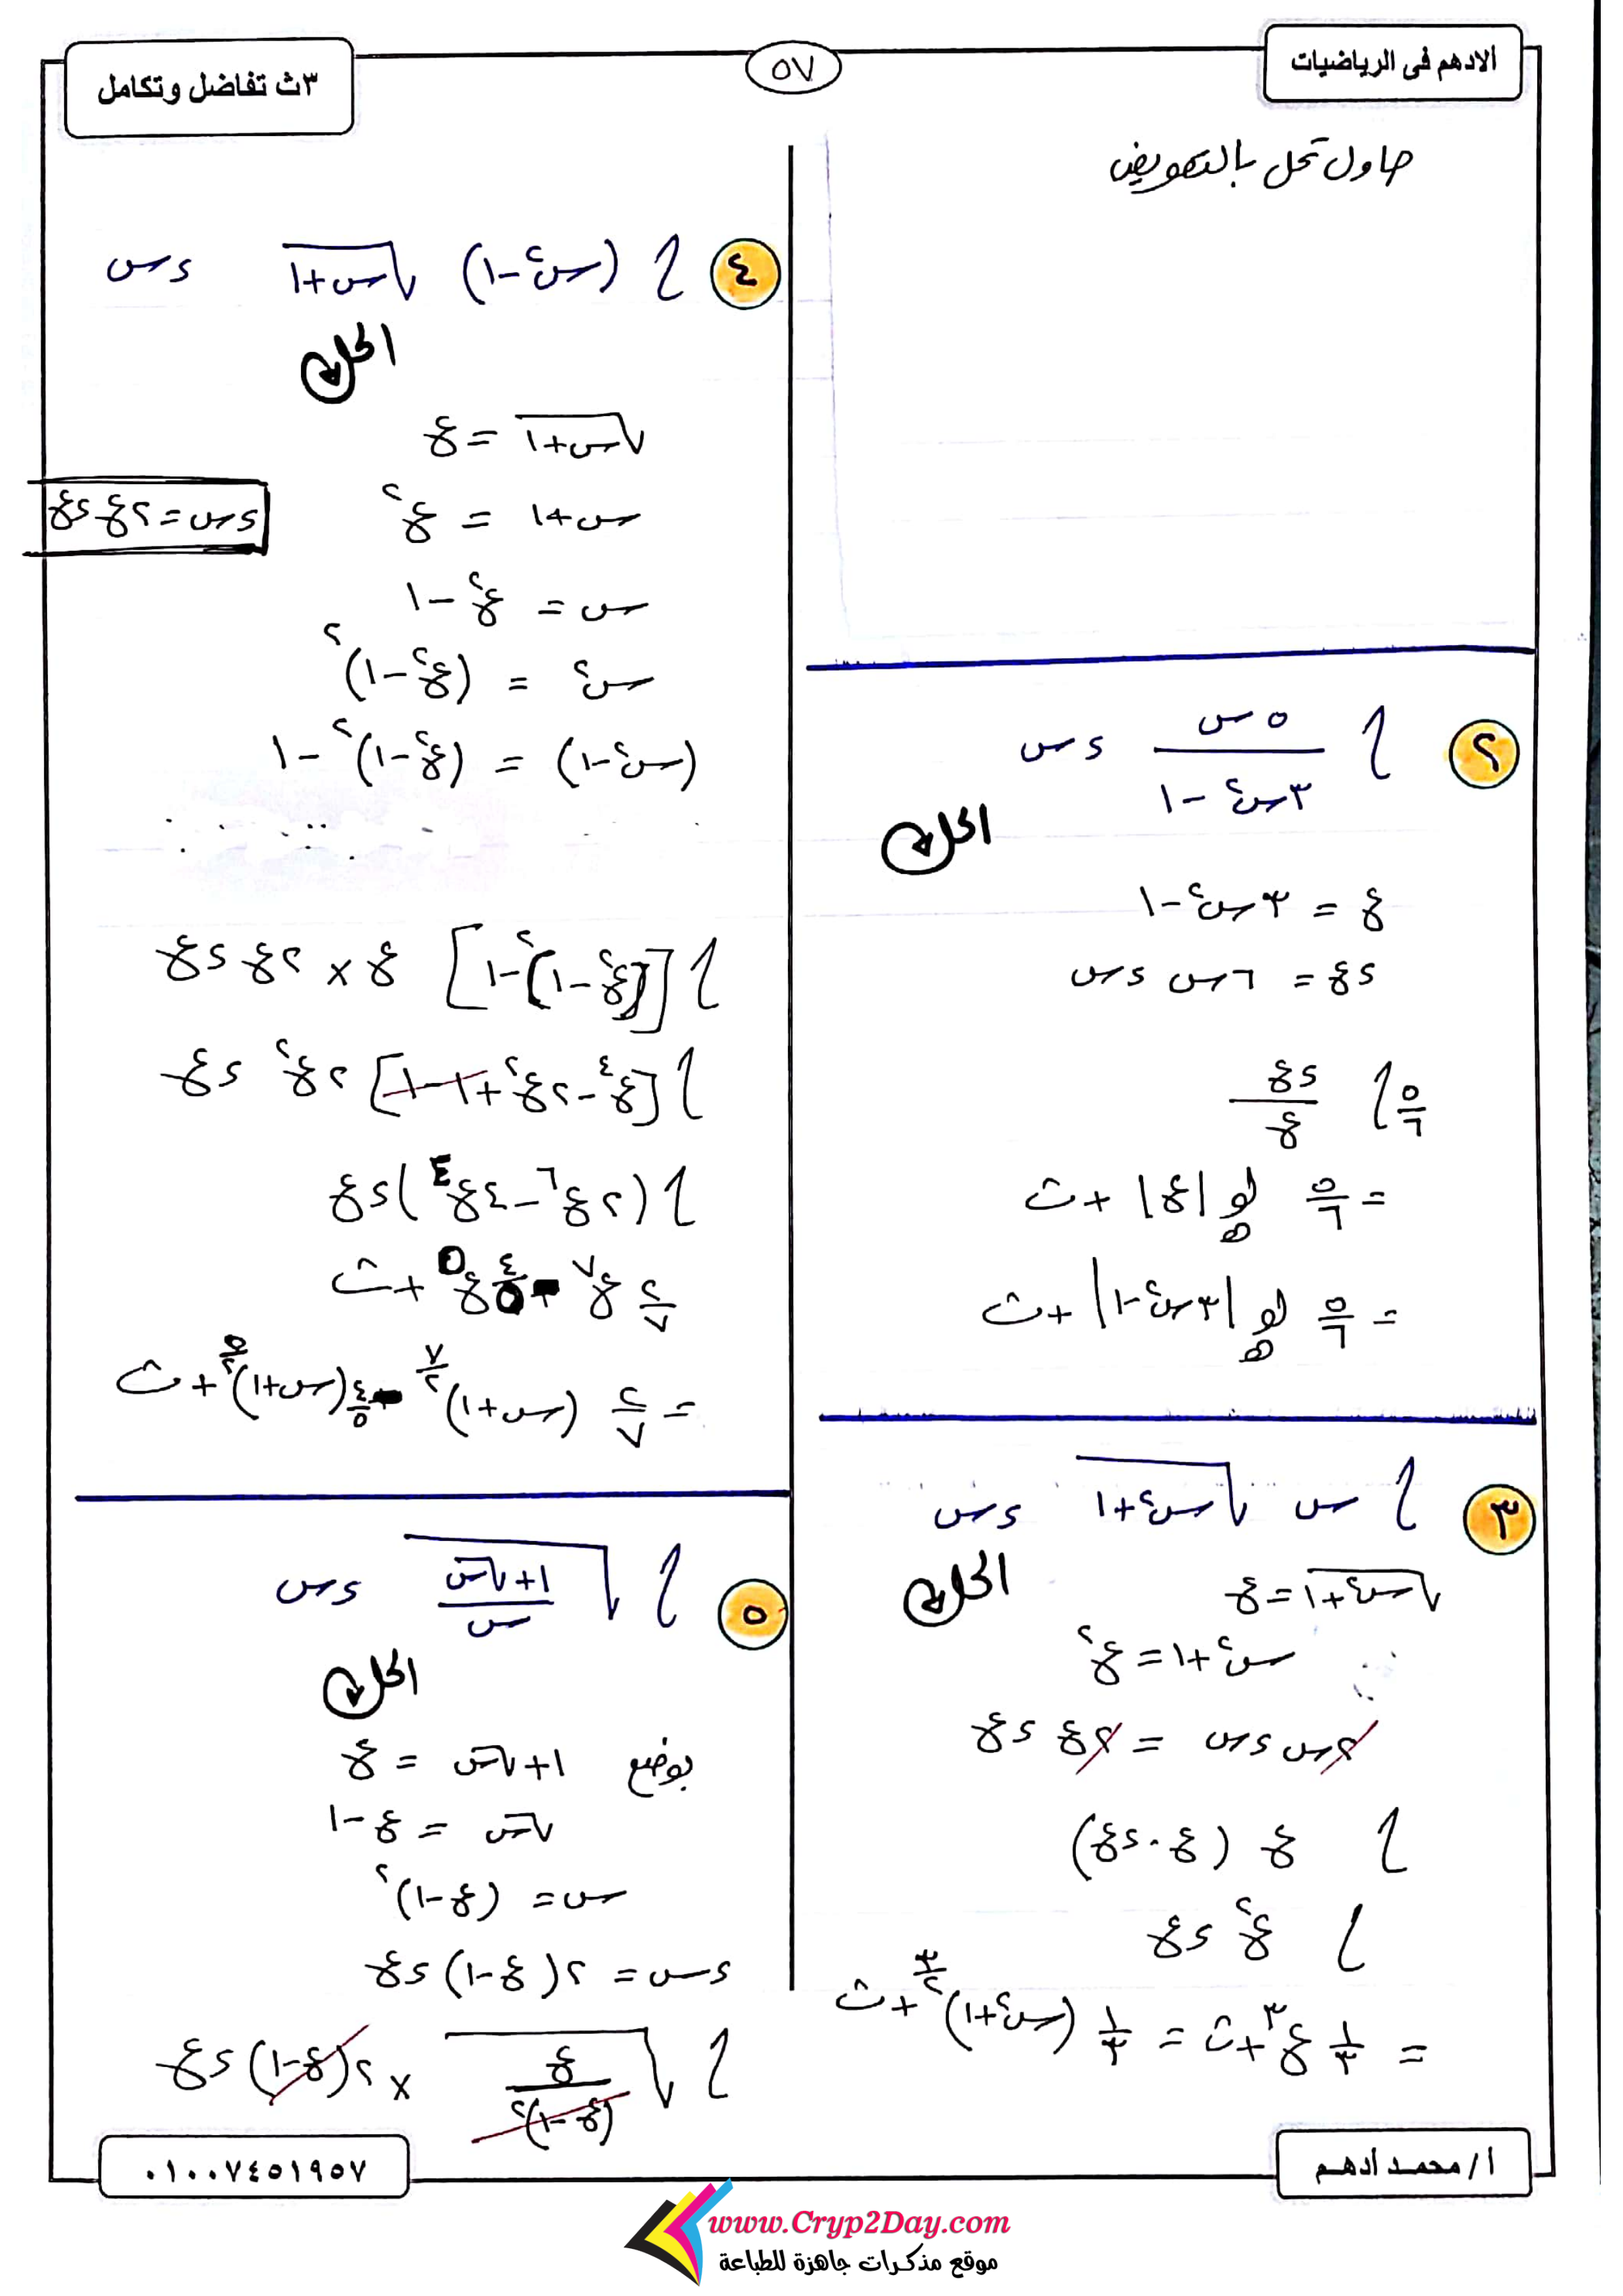 الادهم فى الرياضيات
٥٧
٣ث تفاضل وتكامل
حاول تحل بالتعويض
٢ ∫ ٥س / (٣س² - ١) ءس
الحل
ع = ٣س² - ١
ءع = ٦س ءس
٥/٦ ∫ ءع / ع
= ٥/٦ لو_ه |ع| + ث
= ٥/٦ لو_ه |٣س² - ١| + ث
٣ ∫ س √(س² + ١) ءس
الحل
√(س² + ١) = ع
س² + ١ = ع²
٢س ءس = ٢ع ءع
∫ ع (ع . ءع)
∫ ع² ءع
= ١/٣ ع³ + ث = ١/٣ (س² + ١)^(٣/٢) + ث
٤ ∫ (س² - ١) √(س + ١) ءس
الحل
√(س + ١) = ع
س + ١ = ع²
ءس = ٢ع ءع
س = ع² - ١
س² = (ع² - ١)²
(س² - ١) = (ع² - ١)² - ١
∫ [(ع² - ١)² - ١] ع × ٢ع ءع
∫ [ع⁴ - ٢ع² + ١ - ١] ٢ع² ءع
∫ (٢ع⁶ - ٤ع⁴) ءع
٢/٧ ع⁷ - ٤/٥ ع⁵ + ث
= ٢/٧ (س + ١)^(٧/٢) - ٤/٥ (س + ١)^(٥/٢) + ث
٥ ∫ √((١ + √س) / س) ءس
الحل
بوضع ١ + √س = ع
√س = ع - ١
س = (ع - ١)²
ءس = ٢(ع - ١) ءع
∫ √(ع / (ع - ١)²) × ٢(ع - ١) ءع
أ/ محمد أدهم
٠١٠٠٧٤٥١٩٥٧
www.Cryp2Day.com
موقع مذكرات جاهزة للطباعة